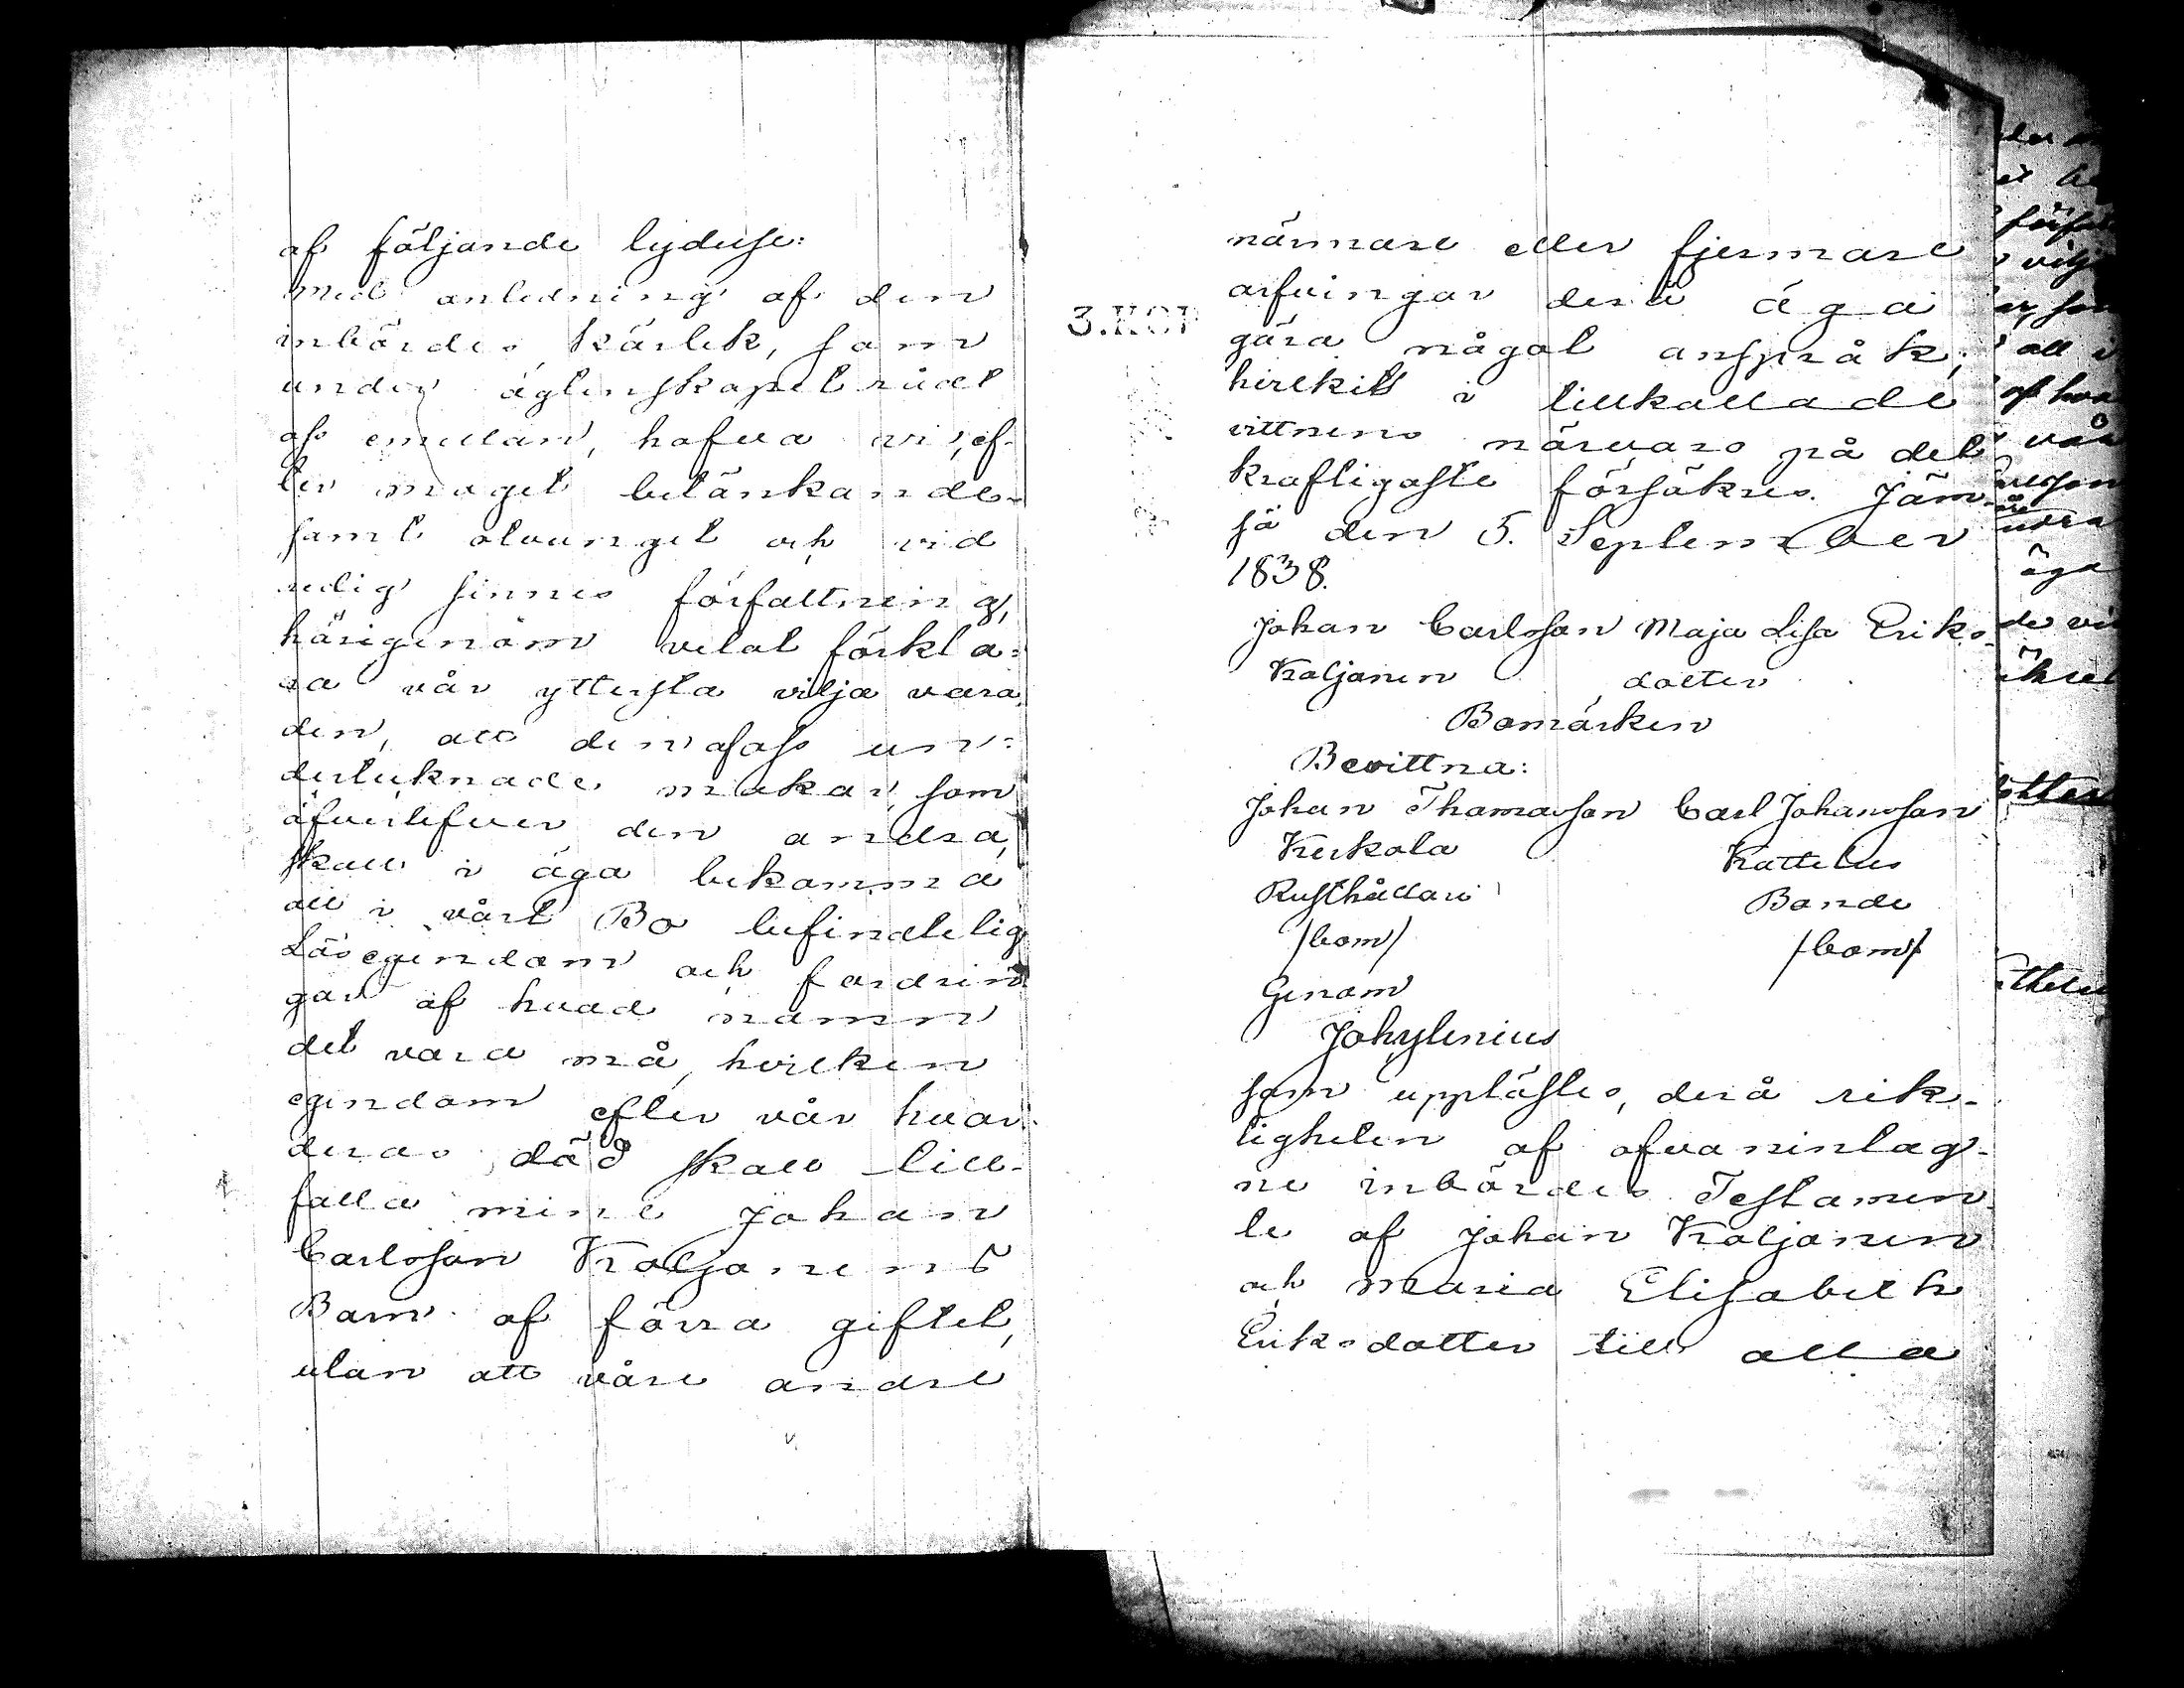 af följande lydelse:
Med anledning af den
inbördes kärlek, som
under ägtenskapet rådt
oss emellan, hafva vi, ef-
ter moget betänkande
samt otvunget och vid
redig sinnes författning,
härigenom velat förkla=
ra vår yttersta vilja vara
den, att den af oss un=
dertecknade makar, som
öfverlefver den andra,
skall äga bekomma
all i vårt Bo befindtelig
Lösegendom och fordrin
gar af hvad namn
det vara må, hvilken
egendom efter vår hvar-
deras död skall till-
falla mine Johan
Carlsson Koljonens
Barn af förra giftet,
utan att våre andre
närmare eller fjermare
arfvingar derå äga
göra något anspråk,
hvilket i tillkallade
vittnens närvaro på det
kraftigaste försäkras. Jäm-
sä den 5. September
1838.
Johan Carlsson Maja Lisa Eriks-
Koljonen dotter
Bomärken
Bevittna:
Johan Thomasson Carl Johansson
Kerkola Kattelus
Rusthållare Bonde
/bom/ /bom/
Genom
Joh.
som upplästes, derå rik-
tigheten af ofvanintag-
ne inbördes Testamen-
te af Johan Koljonen
och Maria Elisabeth
Eriksdotter till alla
3.KOP